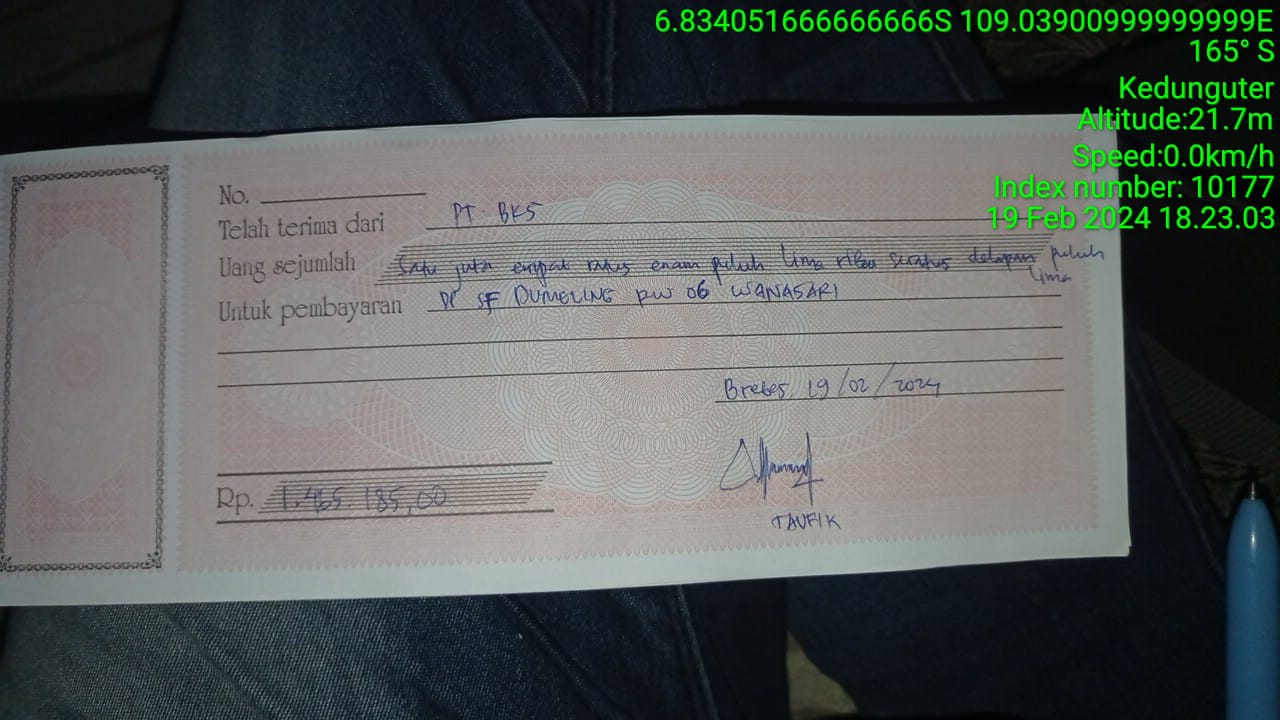 6.834051666666666S 109.03900999999999E
165° S
Kedunguter
Altitude:21.7m
Speed:0.0km/h
Index number: 10177
19 Feb 2024 18.23.03
No.
Telah terima dari PT. BKS
Uang sejumlah Satu juta empat ratus enam puluh lima ribu seratus delapan puluh
lima
Untuk pembayaran DP SF DUMELING RW 06 WANASARI
Brebes, 19/02/2024
Rp. 1.465.185,00
TAUFIK